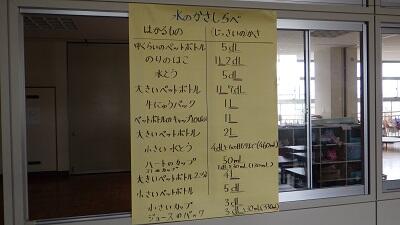 水のかさしらべ
はかるもの じっさいのかさ
中くらいのペットボトル 5dL
のりのはこ 1L2dL
水とう 5dL
大きいペットボトル 1L7dL
牛にゅうパック 1L
ペットボトルのキャップ 1L
大きいペットボトル 2L
小さい水とう 4dLと60mL(460mL)
ハートのカップ 50mL
カップ 1dLと30mL(130mL)
大きいペットボトル2つ分 4L
小さいペットボトル 5dL
小さいカップ 3dL
ジュースのパック 3dLと30mL(330mL)